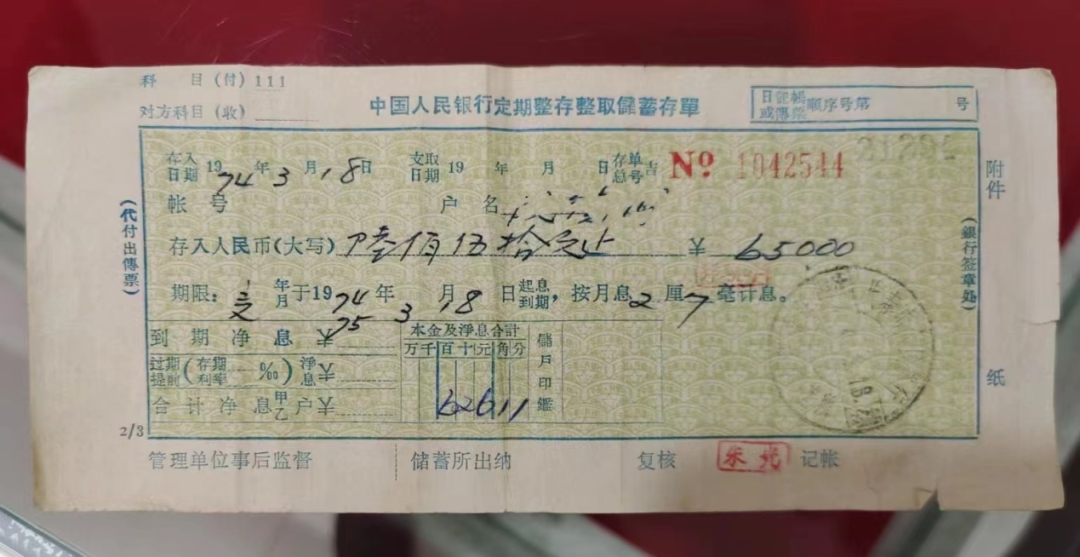 科 目(付)111
对方科目(收)
中国人民银行定期整存整取儲蓄存單
日記帳或傳票 順序号第 号
存入日期 1974年3月18日 支取日期 19 年 月 日 存单总号 吉 No 1042544
帐 号 户 名
存入人民币(大写) 陆佰伍拾元正 ￥65000
期限: 年月于1974年3月18日起息到期,按月息2厘7毫计息。
75
到 期 净 息 ￥
本金及淨息合計
万千百十元角分
过期提前(存期利率 ‰)淨息 ￥
合 计 净 息 甲乙 户 ￥
62611
儲戶印鑑
2/3
管理单位事后监督 储蓄所出纳 复核 朱光 记帐
(代付出傳票)
(銀行签章处)
附件 纸